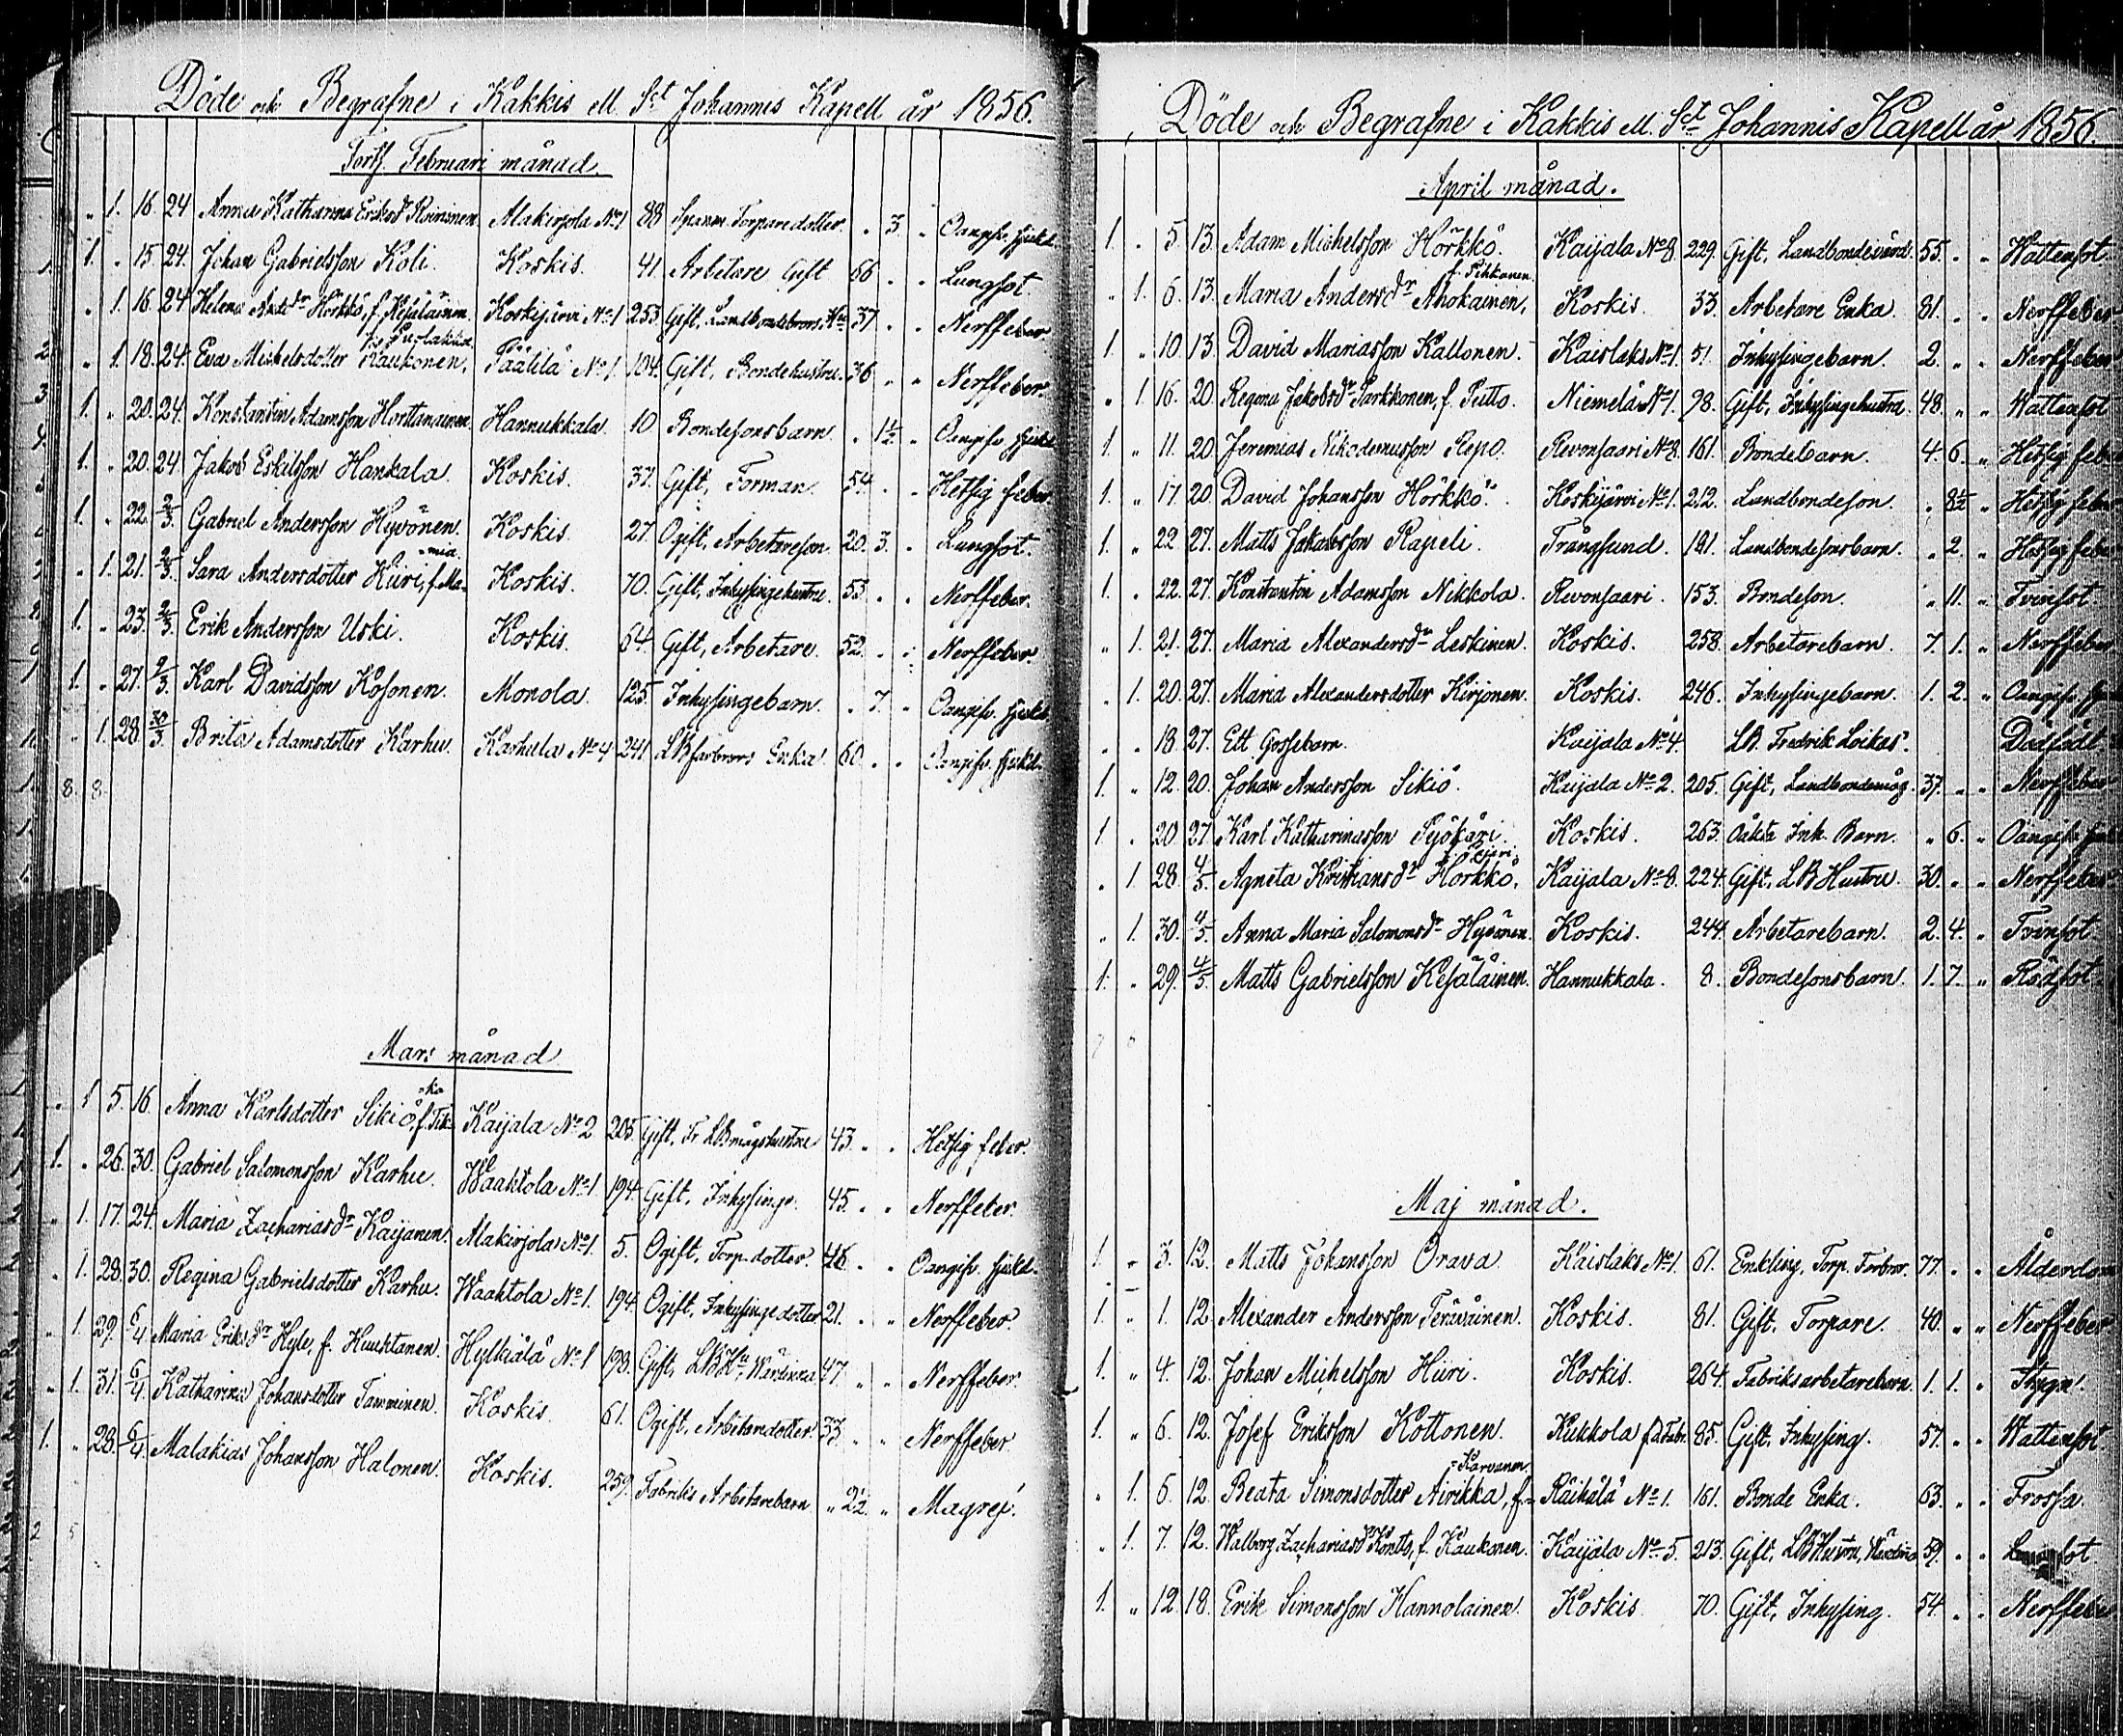 Döde och Begrafne i Kakkis ell. S:t Johannis Kapell år 1856.
Forts. Februari månad.
" 1. 16. 24 Anna Katharina Eriksd:r Roinonen. Makirjola No 1 88 Spanm. Torparedotter. " 3. " Oangifv. sjukd.
1. " 15 24. Johan Gabrielsson Koli. Koskis. 41. Arbetare Gift 66 " " Lungsot.
" 1. 16. 24 Helena Andd:r Hörkkö, f. Kesäläinen. Koskijärvi No 1 253. Gift, Landbondebrors Hu 37 " " Nerffeber.
" 1. 18. 24. Eva Michelsdotter Kaukonen, f. Puslakka. Päätilä No 1. 104. Gift, Bondehustru. 36 " " Nerffeber.
1. " 20. 24. Konstantin Adamsson Horttanainen. Hannukkala. 10 Bondesonsbarn. " 1½ " Oangifv. sjukd.
1. " 20. 24. Jakob Eskilsson Hankala. Koskis. 37. Gift, Forman. 54. " " Hetsig feber.
1. " 22. 2/3. Gabriel Andersson Hyvönen. Koskis. 27. Ogift, Arbetareson. 20. 3. " Lungsot.
" 1. 21. 2/3. Sara Andersdotter Kiiri, f. Ma-mia. Koskis. 70. Gift, Inhysingehustru. 53. " " Nerffeber.
1. " 23. 2/3. Erik Andersson Uski. Koskis. 64. Gift, Arbetare. 52. " " Nerffeber.
1. " 27. 2/3. Karl Davidsson Kosonen. Monola. 125. Inhysingebarn. " 7. " Oangifv. sjukd.
" 1. 28. 30/3. Brita Adamsdotter Karhu. Karhula No 4 241 LBfarbrors Enka. 60. " " Oangifv. sjukd.
8. 8.
Mars månad
" 1 5. 16. Anna Karlsdotter Sikiö, f. Tik-ka Kaijala No 2 205. Gift, Fr LBmågshustru 43. " " Hetsig feber.
1. " 26. 30. Gabriel Salomonsson Karhu. Waaktola No 1 194. Gift, Inhysinge. 45. " " Nerffeber.
" 1. 17. 24. Maria Zachariasd:r Kaijanen. Makirjola No 1. 5. Ogift, Torp. dotter. 46. " " Oangifv. sjukd.
" 1. 28. 30. Regina Gabrielsdotter Karhu. Waaktola No 1. 194. Ogift, Inhysingedotter 21. " " Nerffeber.
" 1. 29. 6/4. Maria Eriksd:r Hyle, f. Huuhtanen. Hylkiälä No 1 198. Gift, LBHu, Wärdinna 47. " " Nerffeber.
" 1. 31. 6/4. Katharina Johansdotter Tamminen. Koskis. 61. Ogift, Arbetaredotter. 33 " " Nerffeber.
1. " 28. 6/4. Malakias Johansson Halonen. Koskis. 259. Fabriks Arbetarebarn " 2½ " Magref.
2 5
Döde och Begrafne i Kakkis ell. S:ct Johannis Kapell år 1856.
April månad.
1. " 5. 13. Adam Michelsson Hörkkö. Kaijala No 8. 229. Gift, Landbondevärd. 55. " " Wattensot.
" 1. 6. 13. Maria Andersd:r Ahokainen, f. Pihkanen. Koskis. 33. Arbetare Enka 81. " " Nerffeber
1. " 10. 13. David Mariasson Kallonen. Kaislaks No 1. 51. Inhysingebarn. 2. " " Nerffeber
" 1. 16. 20. Regina Jakobsd:r Parkkonen, f. Putto. Niemelä No 1. 98. Gift, Inhysingehustru. 48. " " Wattensot
1. " 11. 20. Jeremias Nikodemusson Repo. Revonsaari No 8. 161. Bondebarn. 4. 6. " Hetsig feber
1. " 17 20. David Johansson Hörkkö. Koskijärvi No 1. 212. Landbondeson. " 8½ " Hetsig feber
1. " 22 27. Matts Jakobsson Rapeli. Trångsund. 191. Landbondesonsbarn. " 2. " Hetsig feber
1. " 22. 27. Konstantin Adamsson Nikkola. Revonsaari. 153. Bondeson. " 11. " Tvinsot.
" 1. 21. 27. Maria Alexandersd:r Leskinen. Koskis. 258. Arbetarebarn. 7. 1. " Nerffeber
" 1. 20. 27. Maria Alexandersdotter Kirjonen. Koskis. 246. Inhysingebarn. 1. 2. " Oangifv.
" " 18. 27. Ett Gossebarn. Kaijala No 4. LB. Fredrik Loikas. Dödfödt.
1. " 12. 20. Johan Andersson Sikiö. Kaijala No 2. 205. Gift, Landbondemåg. 37. " " Nerffeber
1. " 20. 27. Karl Katharinasson Pyökäri. Koskis. 263. Oäkta Inh. Barn. " 6. " Oangifv.
" 1. 28. 4/5. Agneta Kristiansd:r Hörkkö, Kaijala No 8. 224. Gift, LB Hustru. 30. " " Nerffeber
" 1. 30. 4/5. Anna Maria Salomonsd:r Hyvönen. Koskis. 244. Arbetarebarn. 2. 4. " Tvinsot.
1. " 29. 4/5. Matts Gabrielsson Kesäläinen. Hannukkala. 8. Bondesonsbarn. 1. 7. " Rödsot.
Maj månad.
1. " 3. 12. Matts Johansson Orava. Kaislaks No 1. 61. Enkling, Torp. Farbror. 77. " " Ålderdom
1. " 1. 12. Alexander Andersson Teräväinen. Koskis. 81. Gift, Torpare. 40. " " Nerffeber
1. " 4. 12. Johan Michelsson Hiiri. Koskis. 264. Fabriksarbetarebarn. 1. 1. "
1. " 6. 12. Josef Eriksson Kottonen. Kukkola 85. Gift, Inhysing. 57. " " Wattensot
" 1. 6. 12. Beata Simonsdotter Airikka, f. Karvanen. Räihälä No 1. 161. Bonde Enka. 63. " " Frossa.
" 1. 7. 12. Walborg Zachariasd:r Kontto, f. Kaukonen. Kaijala No 5. 213. Gift, LBHustru, Wärdinna 59. " " Lungsot
1. " 12. 18. Erik Simonsson Hannolainen. Koskis. 70. Gift, Inhysing. 54. " " Nerffeber